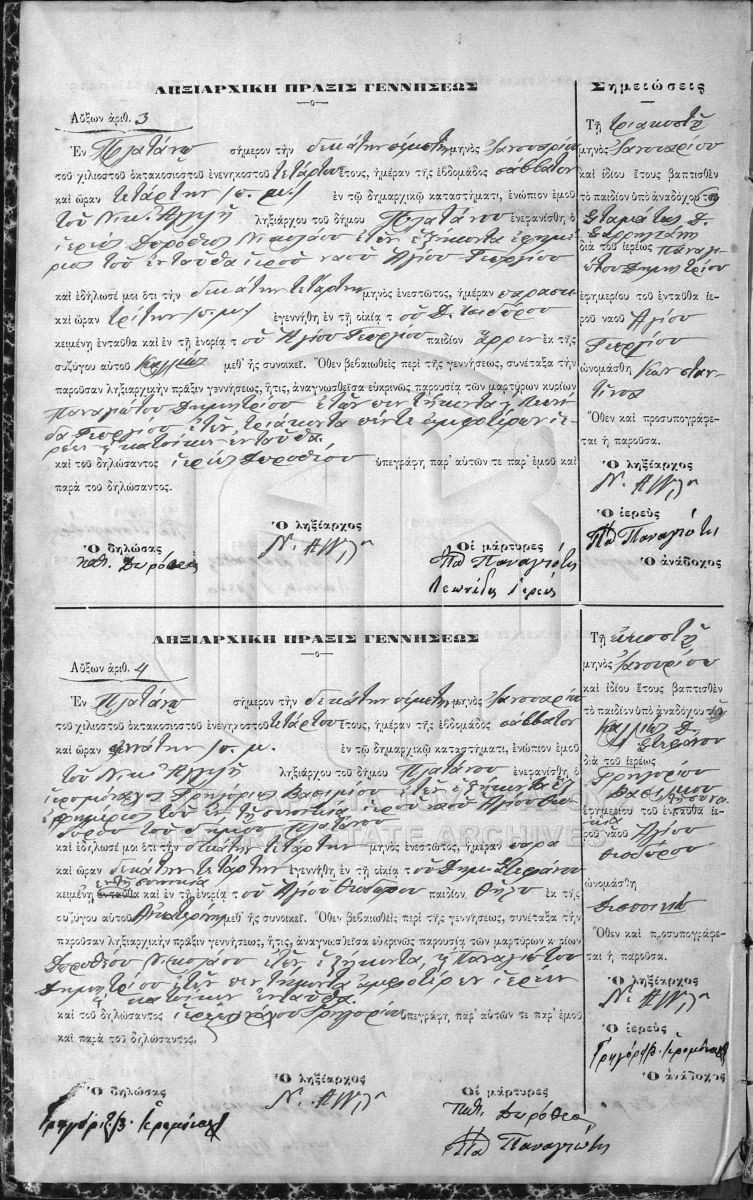 ΛΗΞΙΑΡΧΙΚΗ ΠΡΑΞΙΣ ΓΕΝΝΗΣΕΩΣ
Αὔξων ἀριθ. 3
Ἐν Πλατάνῳ σήμερον τὴν δεκάτην πέμπτην μηνὸς Ἰανουαρίου
τοῦ χιλιοστοῦ ὀκτακοσιοστοῦ ἐνενηκοστοῦ τετάρτου ἔτους, ἡμέραν τῆς ἑβδομάδος σάββατον
καὶ ὥραν τετάρτην μ.μ. ἐν τῷ δημαρχικῷ καταστήματι, ἐνώπιον ἐμοῦ
τοῦ Νικ. ληξιάρχου τοῦ δήμου Πλατάνου ἐνεφανίσθη ὁ
ἱερεὺς Δωρόθεος Νικολάου ἐτῶν ἑξήκοντα ἐφημέ
ριος τοῦ ἐνταῦθα ἱεροῦ ναοῦ Ἁγίου Γεωργίου
καὶ ἐδήλωσέ μοι ὅτι τὴν δεκάτην τετάρτην μηνὸς ἐνεστῶτος, ἡμέραν παρασκε
καὶ ὥραν τρίτην μ.μ. ἐγεννήθη ἐν τῇ οἰκίᾳ τοῦ Δ.
κειμένῃ ἐνταῦθα καὶ ἐν τῇ ἐνορίᾳ τοῦ Ἁγίου Γεωργίου παιδίον ἄρρεν ἐκ τῆς
συζύγου αὐτοῦ μεθ' ἧς συνοικεῖ. Ὅθεν βεβαιωθεὶς περὶ τῆς γεννήσεως, συνέταξα τὴν
παροῦσαν ληξιαρχικὴν πρᾶξιν γεννήσεως, ἥτις, ἀναγνωσθεῖσα εὐκρινῶς παρουσίᾳ τῶν μαρτύρων κυρίων
Παναγιώτου Δημητρίου ἐτῶν πεντήκοντα ἢ Λεωνί
δα Γεωργίου ἐτῶν τριάκοντα πέντε ἀμφοτέρων ἱε
ρέων ἢ κατοίκων ἐνταῦθα.
καὶ τοῦ δηλώσαντος ἱερέως Δωροθέου ὑπεγράφη παρ' αὐτῶν τε παρ' ἐμοῦ καὶ
παρὰ τοῦ δηλώσαντος.
Ὁ δηλώσας Ὁ ληξίαρχος Οἱ μάρτυρες
παπ. Δωρόθεος Ν. Παπα Παναγιώτης
Λεωνίδας Ἱερεύς
Σημειώσεις
Τῇ τριακοστῇ
μηνὸς Ἰανουαρίου
καὶ ἰδίου ἔτους βαπτισθὲν
τὸ παιδίον ὑπὸ ἀναδόχου τοῦ
Σταμάτας Δ.
διὰ τοῦ ἱερέως Παναγι
ώτου Δημητρίου
ἐφημερίου τοῦ ἐνταῦθα ἱε-
ροῦ ναοῦ Ἁγίου
Γεωργίου
ὠνομάσθη Κωνσταν
τῖνος
Ὅθεν καὶ προσυπογράφε-
ται ἡ παροῦσα.
Ὁ ληξίαρχος
Ν.
Ὁ ἱερεὺς
Παπα Παναγιώτης
Ὁ ἀνάδοχος
ΛΗΞΙΑΡΧΙΚΗ ΠΡΑΞΙΣ ΓΕΝΝΗΣΕΩΣ
Αὔξων ἀριθ. 4
Ἐν Πλατάνῳ σήμερον τὴν δεκάτην πέμπτην μηνὸς Ἰανουαρίου
τοῦ χιλιοστοῦ ὀκτακοσιοστοῦ ἐνενηκοστοῦ τετάρτου ἔτους, ἡμέραν τῆς ἑβδομάδος σάββατον
καὶ ὥραν μ. ἐν τῷ δημαρχικῷ καταστήματι, ἐνώπιον ἐμοῦ
τοῦ Νικ. ληξιάρχου τοῦ δήμου Πλατάνου ἐνεφανίσθη ὁ
ἱερομόναχος Γρηγόριος ἐτῶν ἑξήκοντα
ἐφημέριος τοῦ ἐν τῇ συνοικίᾳ ἱεροῦ ναοῦ Ἁγίου Θεο
δώρου τοῦ δήμου Πλατάνου
καὶ ἐδήλωσέ μοι ὅτι τὴν δεκάτην τετάρτην μηνὸς ἐνεστῶτος, ἡμέραν παρα
καὶ ὥραν δεκάτην τετάρτην ἐγεννήθη ἐν τῇ οἰκίᾳ τοῦ Δημ. Στεφάνου
ἐν τῇ συνοικίᾳ
κειμένῃ ἐνταῦθα καὶ ἐν τῇ ἐνορίᾳ τοῦ Ἁγίου Θεοδώρου παιδίον θῆλυ ἐκ τῆς
συζύγου αὐτοῦ Αἰκατερίνης μεθ' ἧς συνοικεῖ. Ὅθεν βεβαιωθεὶς περὶ τῆς γεννήσεως, συνέταξα τὴν
παροῦσαν ληξιαρχικὴν πρᾶξιν γεννήσεως, ἥτις, ἀναγνωσθεῖσα εὐκρινῶς παρουσίᾳ τῶν μαρτύρων κυρίων
Δωροθέου Νικολάου ἐτῶν ἑξήκοντα, ἢ Παναγιώτου
Δημητρίου ἐτῶν πεντήκοντα ἀμφοτέρων ἱερέων
ἢ κατοίκων ἐνταῦθα.
καὶ τοῦ δηλώσαντος ἱερομονάχου Γρηγορίου ὑπεγράφη παρ' αὐτῶν τε παρ' ἐμοῦ
καὶ παρὰ τοῦ δηλώσαντος,
Ὁ δηλώσας Ὁ ληξίαρχος Οἱ μάρτυρες
Γρηγόριος Β. Ἱερομόναχος Ν. παπ. Δωρόθεος
Παπα Παναγιώτης
Τῇ εἰκοστῇ
μηνὸς Ἰανουαρίου
καὶ ἰδίου ἔτους βαπτισθὲν
τὸ παιδίον ὑπὸ ἀναδόχου
Δ.
Στεφάνου
διὰ τοῦ ἱερέως
Γρηγορίου
ἐφημερίου τοῦ ἐνταῦθα ἱε-
ροῦ ναοῦ Ἁγίου
Θεοδώρου
ὠνομάσθη
Δέσποινα
Ὅθεν καὶ προσυπογράφε-
ται ἡ παροῦσα.
Ὁ ληξίαρχος
Ν.
Ὁ ἱερεὺς
Γρηγόριος Β. Ἱερομόναχος
Ὁ ἀνάδοχος